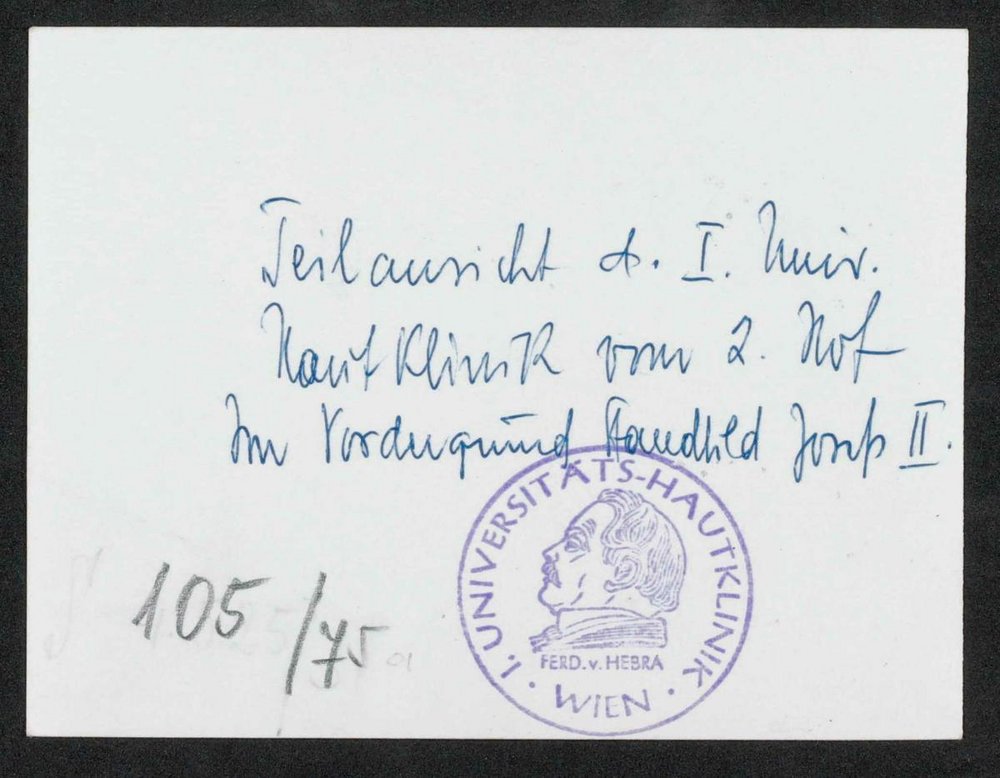 Teilansicht d. I. Univ.
Hautklinik vom 2. Hof
Im Vordergrund Standbild Josefs II.
I. UNIVERSITÄTS-HAUTKLINIK
FERD. v. HEBRA
· WIEN ·
105/75